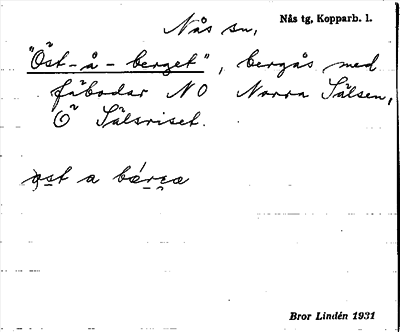 Nås sn,
Nås tg, Kopparb. l.
"Öst-å-berget", bergås med
fäbodar NO Norra Sälsen,
Ö Sälsriset.
ost a bǽrɛæ
Bror Lindén 1931